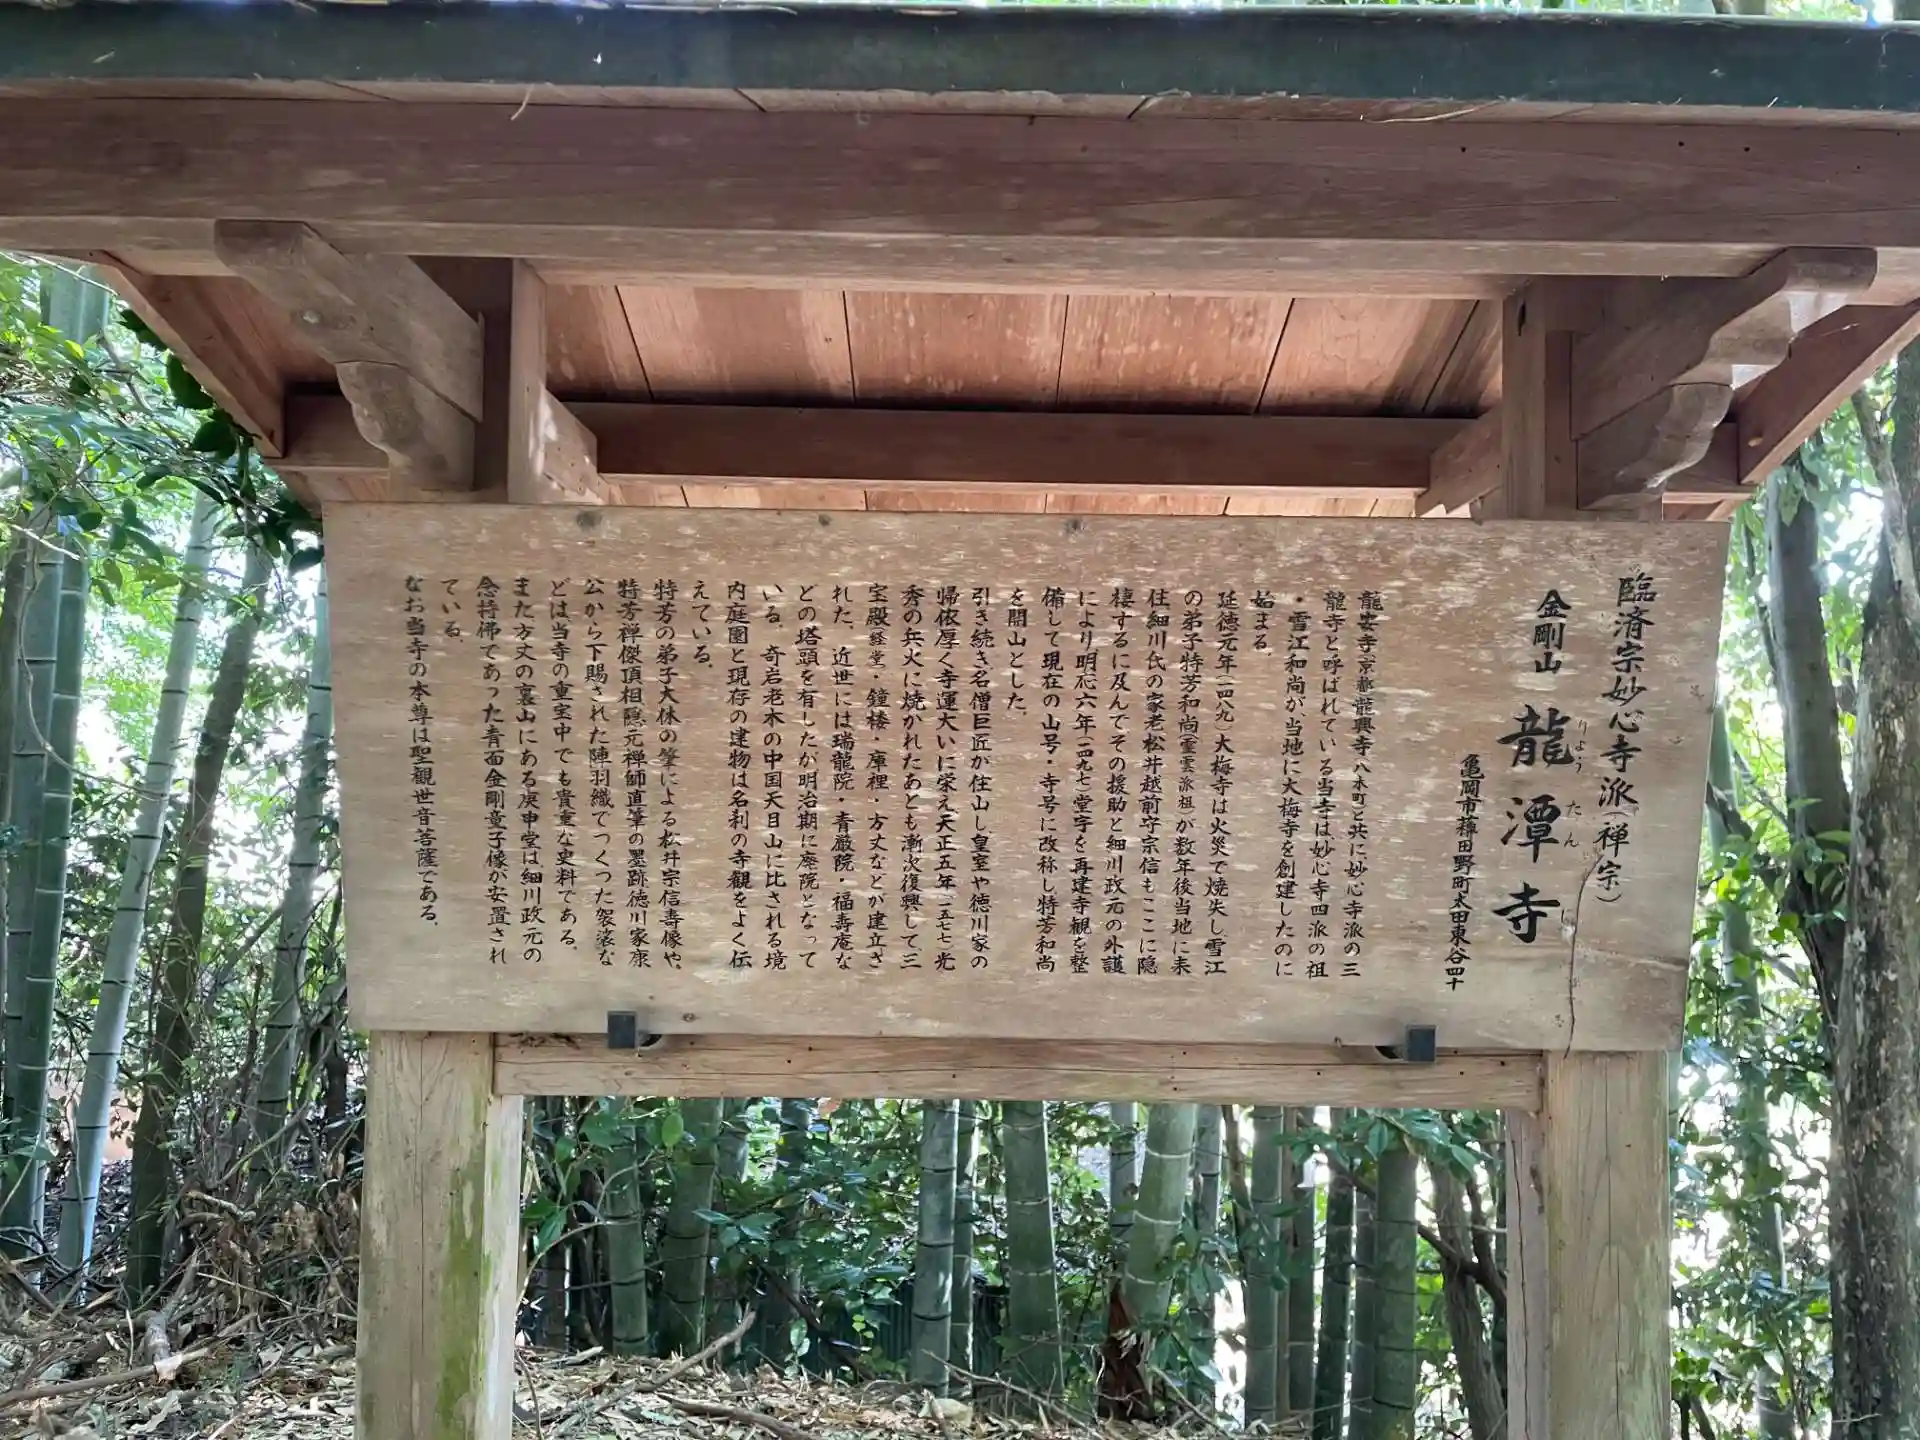 臨済宗妙心寺派(禅宗)
金剛山 龍潭寺
りょう たん じ
亀岡市薭田野町太田東谷四十
龍安寺京都龍興寺八木町と共に妙心寺派の三
龍寺と呼ばれている当寺は、妙心寺四派の祖
・雪江和尚が、当地に大梅寺を創建したのに
始まる。
延徳元年(一四八九)大梅寺は火災で焼失し、雪江
の弟子特芳和尚霊雲派祖が数年後当地に来
住細川氏の家老松井越前守宗信もここに隠
棲するに及んでその援助と細川政元の外護
により明応六年(一四九七)堂宇を再建寺観を整
備して現在の山号・寺号に改称し特芳和尚
を開山とした。
引き続き名僧巨匠が住山し皇室や徳川家の
帰依厚く寺運大いに栄え、天正五年(一五七七)光
秀の兵火に焼かれたあとも漸次復興して、三
宝殿経堂・鐘楼・庫裡・方丈などが建立さ
れた。近世には瑞龍院・青巌院・福壽庵な
どの塔頭を有したが明治期に廃院となって
いる。奇岩老木の中国天目山に比される境
内庭園と現存の建物は名刹の寺観をよく伝
えている。
特芳の弟子大休の筆による松井宗信壽像や、
特芳禅傑頂相隠元禅師直筆の墨跡徳川家康
公から下賜された陣羽織でつくった袈裟な
どは当寺の重宝中でも貴重な史料である。
また方丈の裏山にある庚申堂は細川政元の
念持佛であった青面金剛童子像が安置され
ている。
なお当寺の本尊は聖観世音菩薩である。